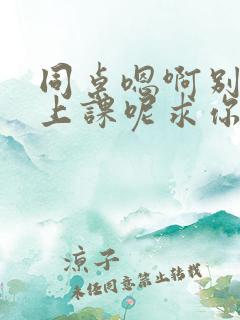 同桌嗯啊别
上課呢求你
凉子
未经同意禁止转载